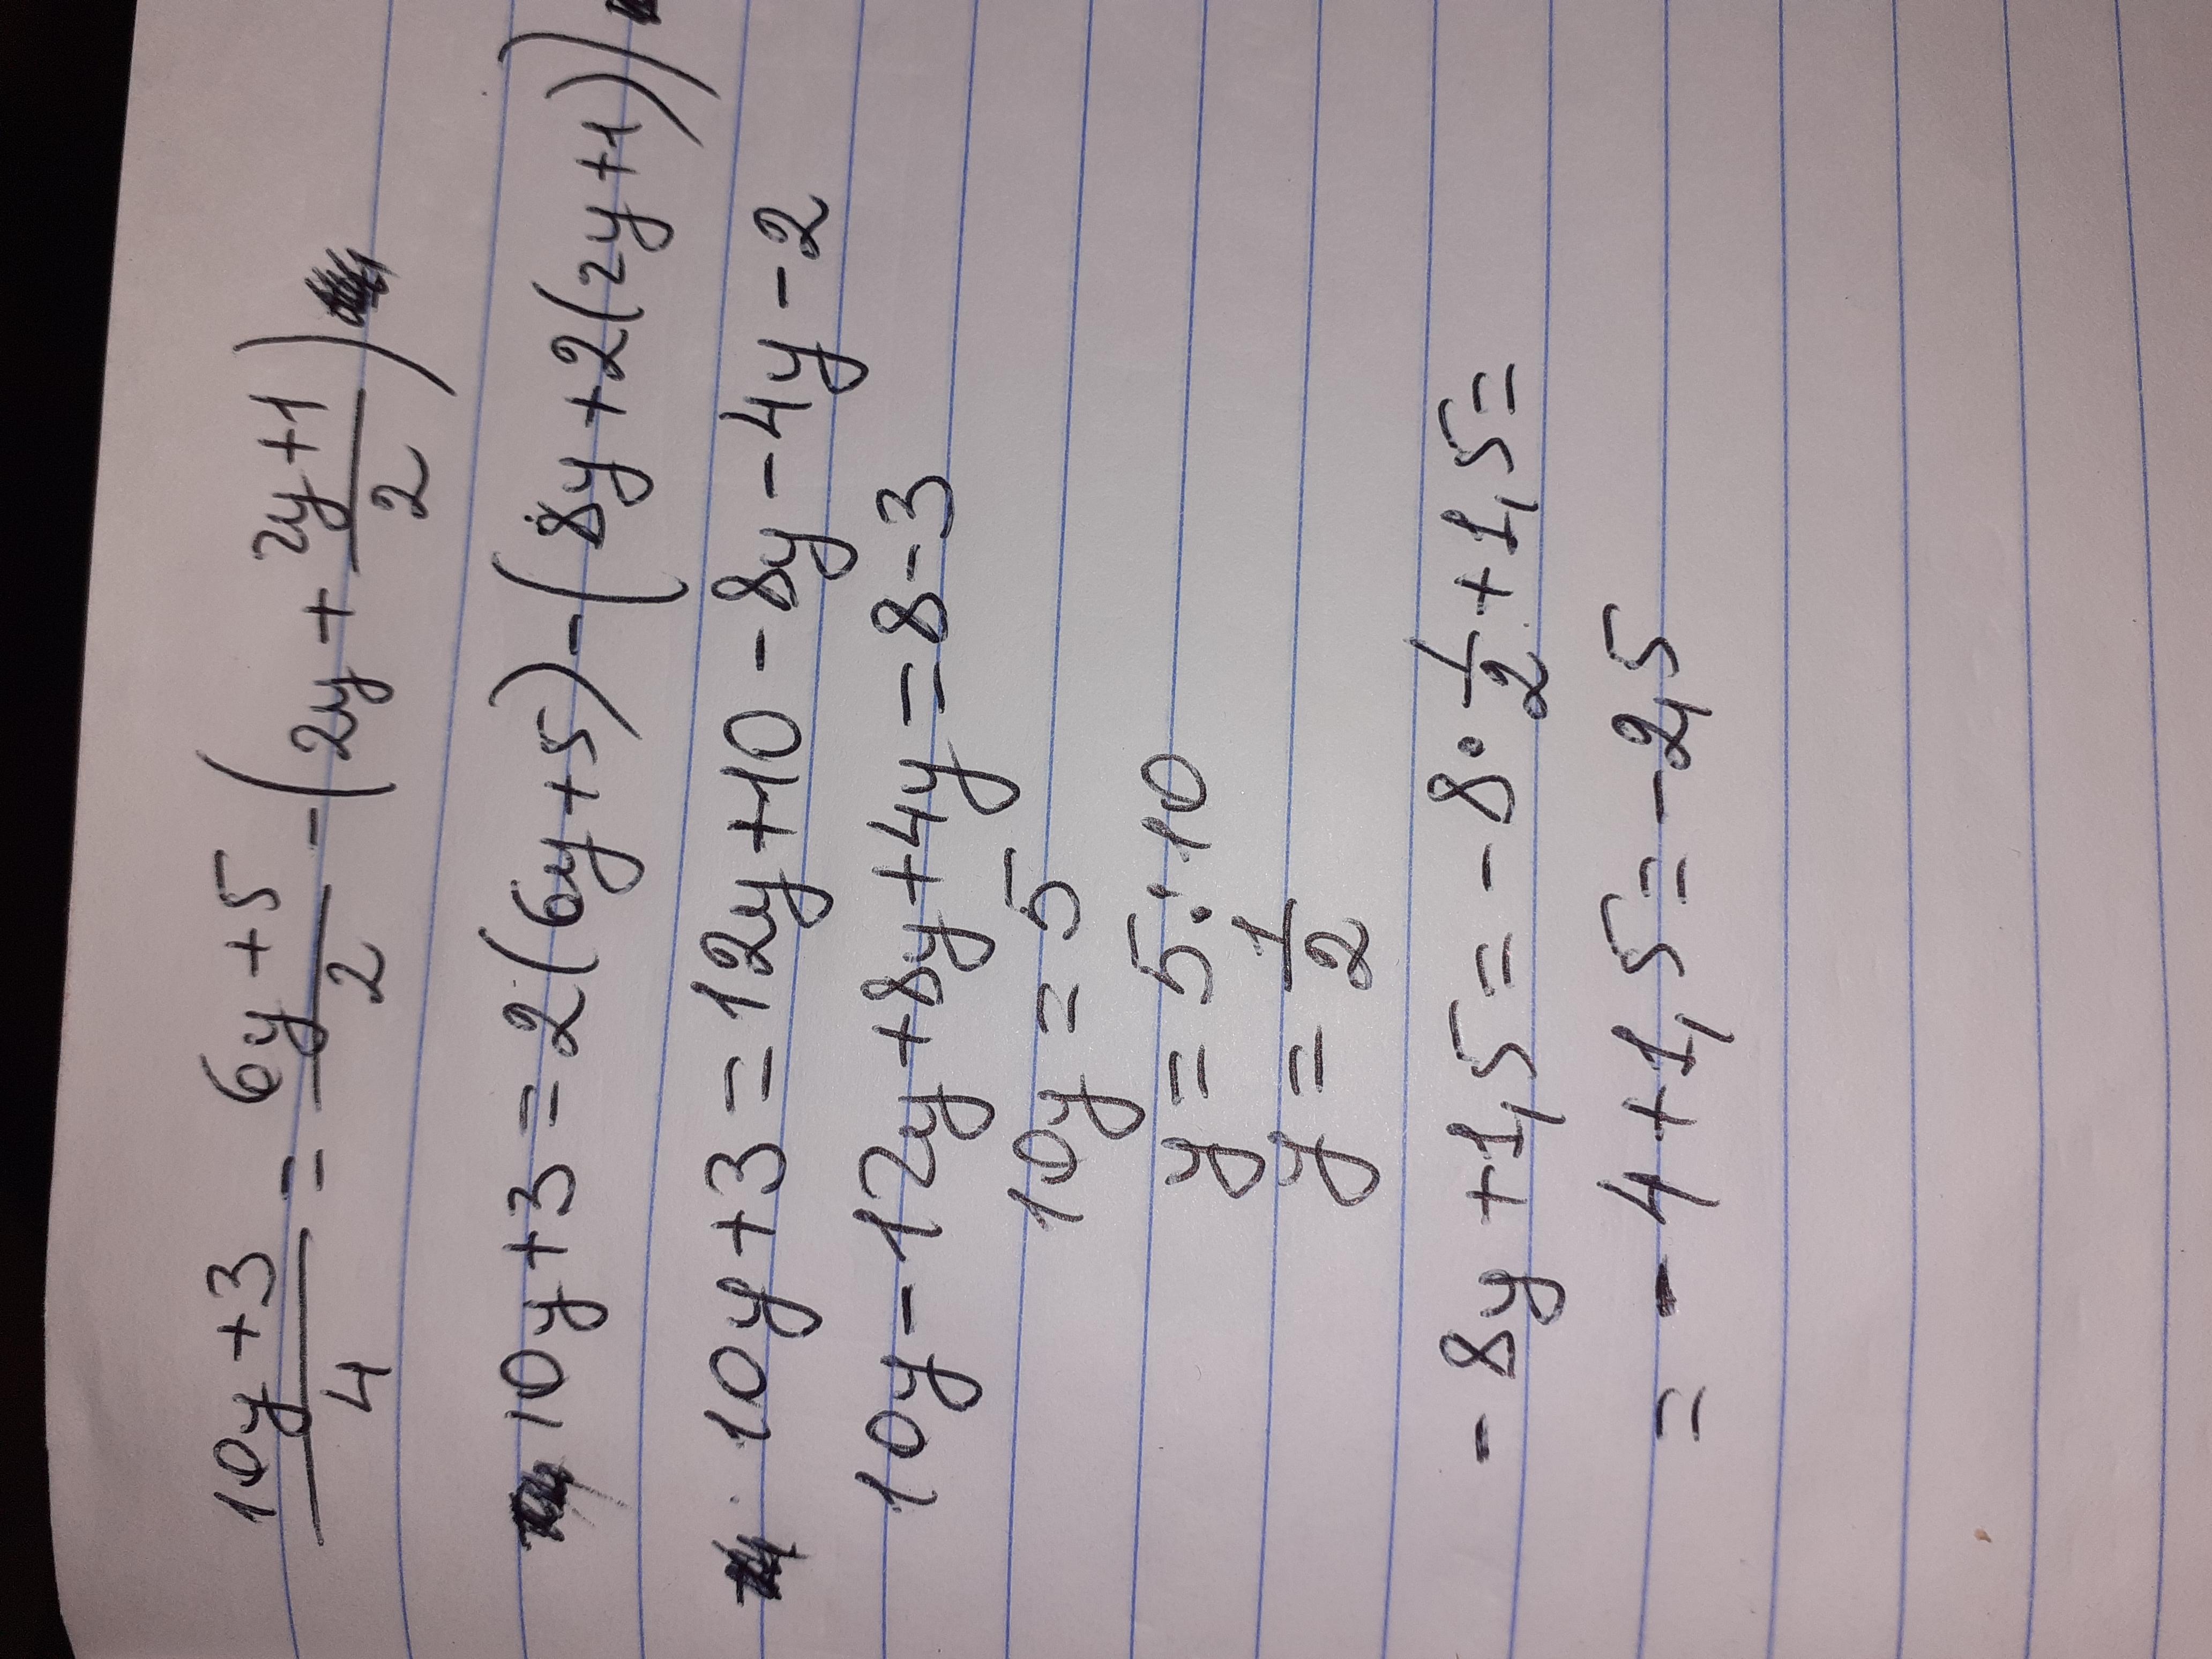 (10y+3)/4 = (6y+5)/2 - (2y + (2y+1)/2)
10y+3=2(6y+5)-(8y+2(2y+1))
10y+3=12y+10-8y-4y-2
10y-12y+8y+4y=8-3
10y=5
y=5:10
y=1/2
-8y+1,5=-8·1/2+1,5=
=-4+1,5=-2,5